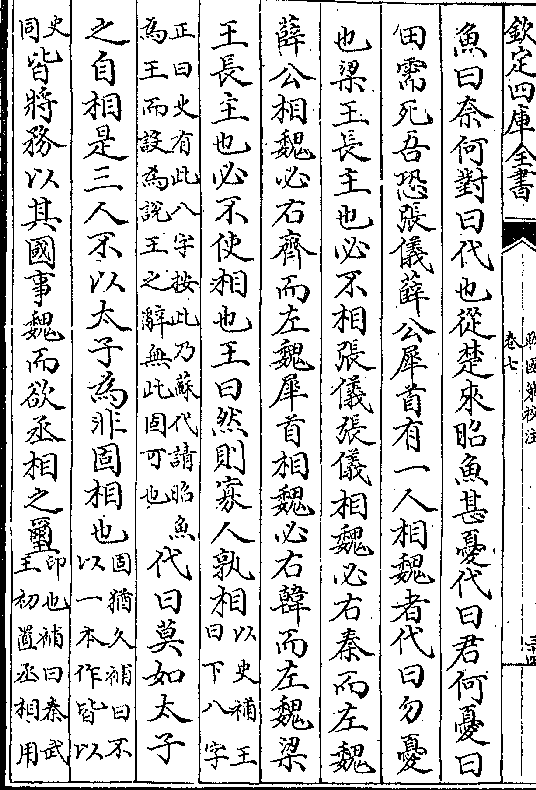 欽定四庫全書
卷七
魚曰奈何對曰代也從楚來昭魚甚憂代曰君何憂曰
田需死吾恐張儀薛公犀首有一人相魏者代曰勿憂
也梁王長主也必不相張儀張儀相魏必右秦而左魏
薛公相魏必右齊而左魏犀首相魏必右韓而左魏梁
王長主也必不使相也王曰然則寡人孰相以史補王曰下八字
正曰史有此八字按此乃蘇代請昭魚為王而設為說王之辭無此固可也代曰莫如太子
之自相是三人不以太子為非固相也固猶久補曰不以一本作皆以
史同皆將務以其國事魏而欲丞相之璽印也補曰秦武王初置丞相用